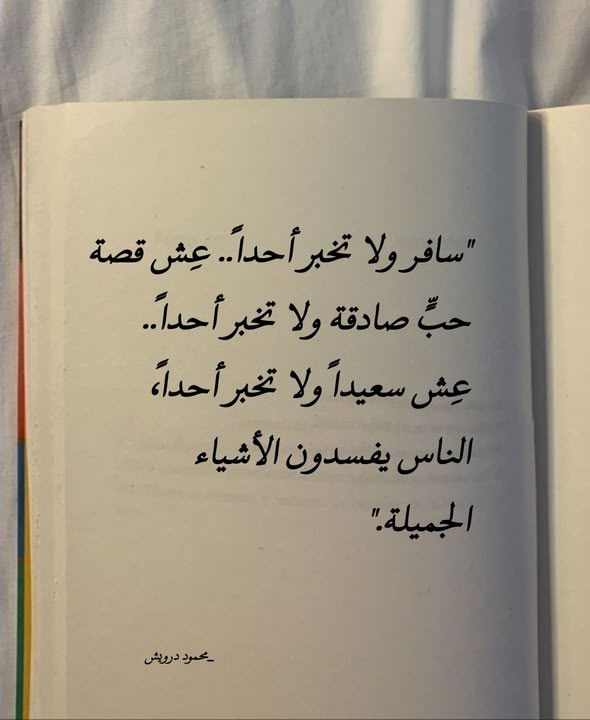 "سافر ولا تخبر أحداً.. عِش قصة
حبٍّ صادقة ولا تخبر أحداً..
عِش سعيداً ولا تخبر أحداً،
الناس يفسدون الأشياء
الجميلة."
_محمود درويش